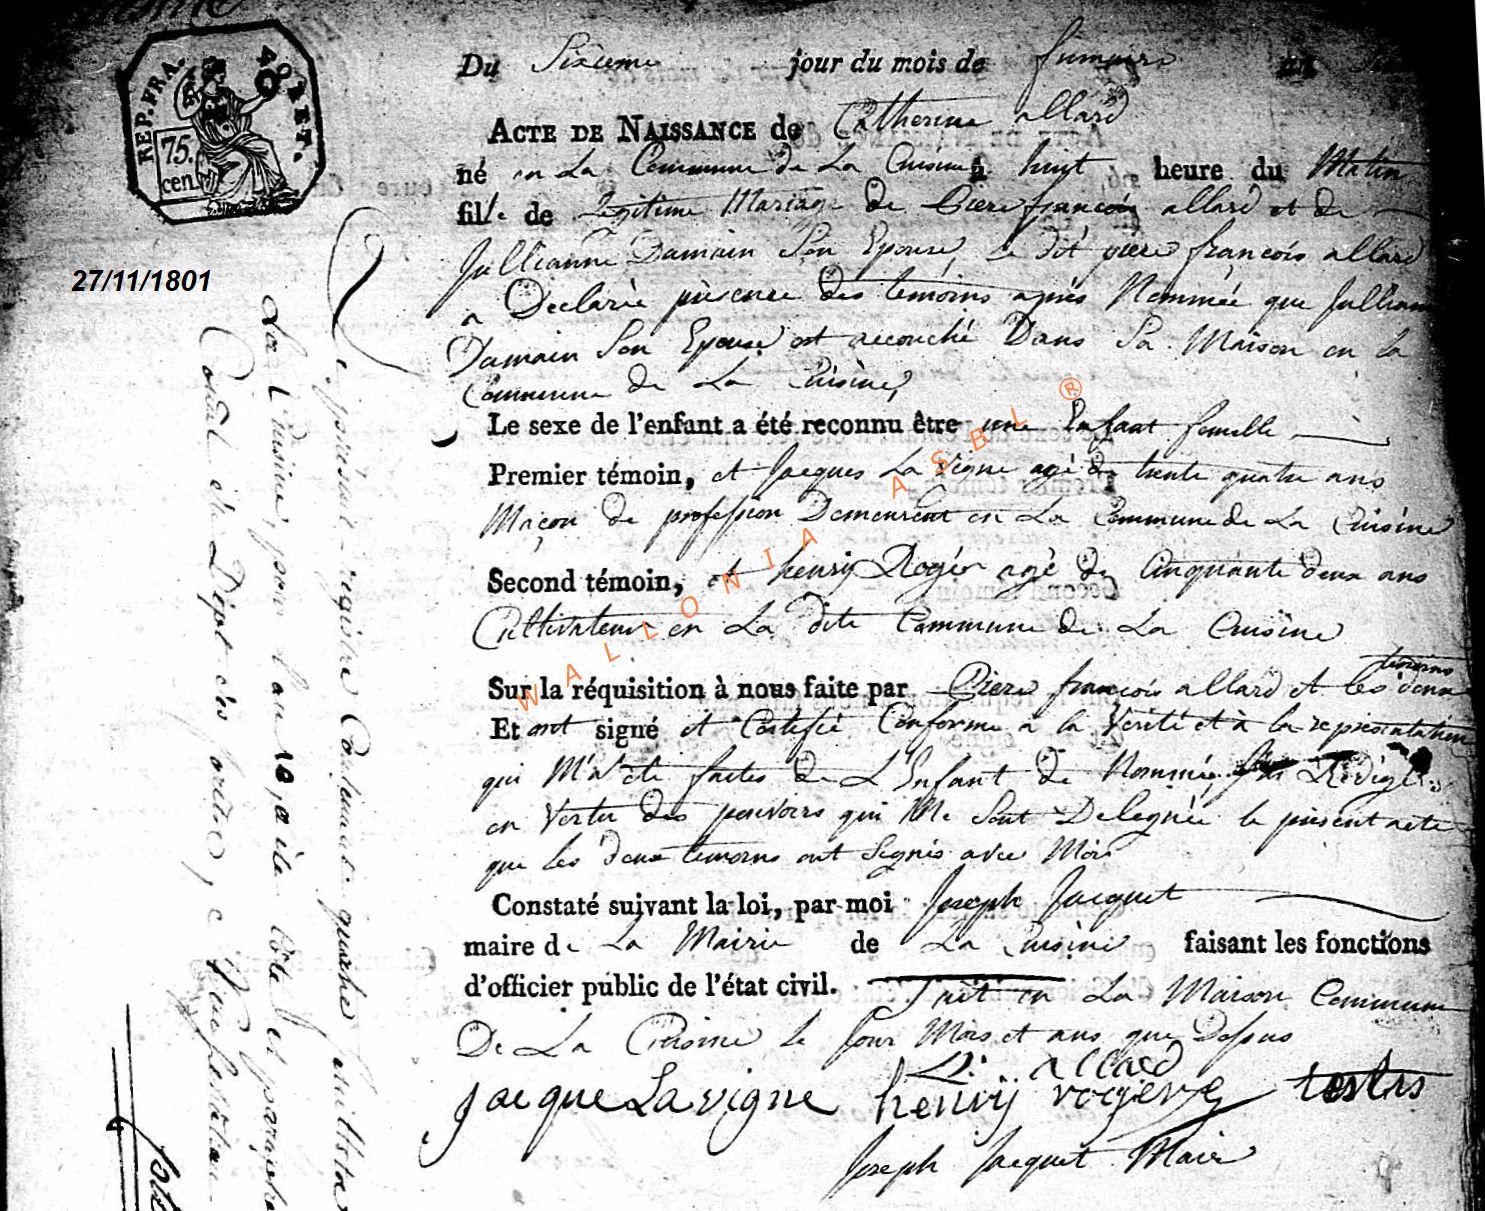 REP. FRA.
40
RET.
75.
cen.
27/11/1801
Du Sixieme jour du mois de frimaire an
ACTE DE NAISSANCE de Catherine allard
né en La Commune de La Cuisine à huit heure du Matin
fille de Legitime Mariage de Piere françois allard et de
Jullianne Damain Son Epouse, Le dit piere françois allard
a Declarée présence des temoins aprés Nommée que Jullianne
Damain Son Epouse est accouché Dans Sa Maison en la
Commune de La Cuisine,
Le sexe de l'enfant a été reconnu être une Enfant femelle
Premier témoin, et Jacques La vigne agé de trente quatre ans
Maçon de profession Demeurent en La Commune de La Cuisine
Second témoin, et henry Rogér agé de Cinquante deux ans
Cultivateur en La dite Commune de La Cuisine
temoins
Sur la réquisition à nous faite par Piere françois allard et les deux
Et ont signé et Certifié Conforme a la Verité et à la representation
qui M'a été faites de L'Enfant de Nommée, Rédigé
en Vertu des pouvoirs qui Me Sont Delegnée le présent acte
que les deux temoins ont Signés avec Moi
Constaté suivant la loi, par moi Joseph Jacquet
maire de La Mairie de La Cuisine faisant les fonctions
d'officier public de l'état civil. Fait en La Maison Commune
De La Cuisine le Jour Mois et ans que Dessus
allard
jacque La vigne henrÿ rogerz
Joseph Jacquet Maire
présent registre Contenant quatre
La Cuisine, pour l'an 10, a été Côté et paraphé
WALLONIA ASBL ®